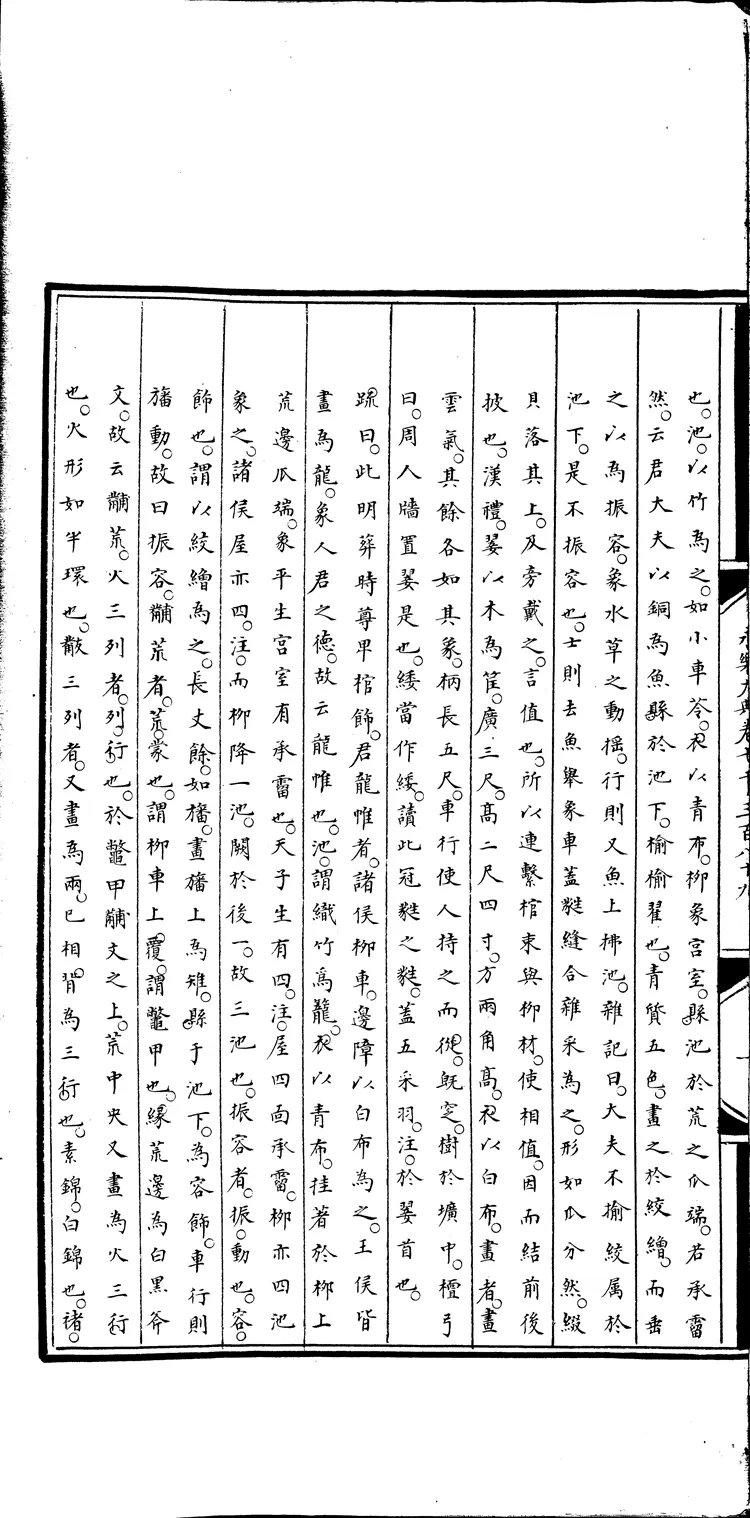 也。池。以竹為之。如小車笭。衣以青布。桺象宮室。縣池於荒之爪端。若承霤
然。云君大夫以銅為魚。縣於池下。榆榆翟也。青質五色。畫之於絞繒。而垂
之以為振容。象水草之動搖。行則又魚上拂池。雜記曰。大夫不揄絞属於
池下。是不振容也。士則去魚舉象車蓋蕤縫合雜采為之。形如瓜分然。綴
貝落其上。及旁戴之。言值也。所以連繫棺束與桺材。使相值。因而結前後
披也。漢禮。翣以木為筐。廣三尺。高二尺四寸。方兩角高。衣以白布。畫者。畫
雲氣。其餘各如其象。柄長五尺。車行使人持之而從。旣窆。樹於壙中。檀弓
曰。周人牆置翣是也。緌當作綏。讀此冠蕤之蕤。蓋五采羽。注。於翣首也。
䟽曰。此明葬時尊卑棺飾。君龍帷者。諸侯桺車。邊障以白布為之。王侯皆
畫為龍。象人君之德。故云龍帷也。池。謂織竹為籠。衣以青布。挂著於桺上
荒邊爪端。象平生宮室有承霤也。天子生有四。注。屋四面承霤。桺亦四池
象之。諸侯屋亦四。注。而桺降一池。闕於後一。故三池也。振容者。振。動也。容。
飾也。謂以絞繒為之。長丈餘。如旛。畫旛上為雉。縣于池下。為容飾。車行則
旛動。故曰振容。黼荒者。荒。蒙也。謂桺車上。覆。謂鼈甲也。緣荒邊為白黑斧
文。故云黼荒。火三列者。列。行也。於鼈甲黼文之上。荒中央又畫為火三行
也。火形如半環也。黻三列者。又畫為兩。已相。背為三行也。素錦。白錦也。褚。
永樂大典卷七千三百八十九